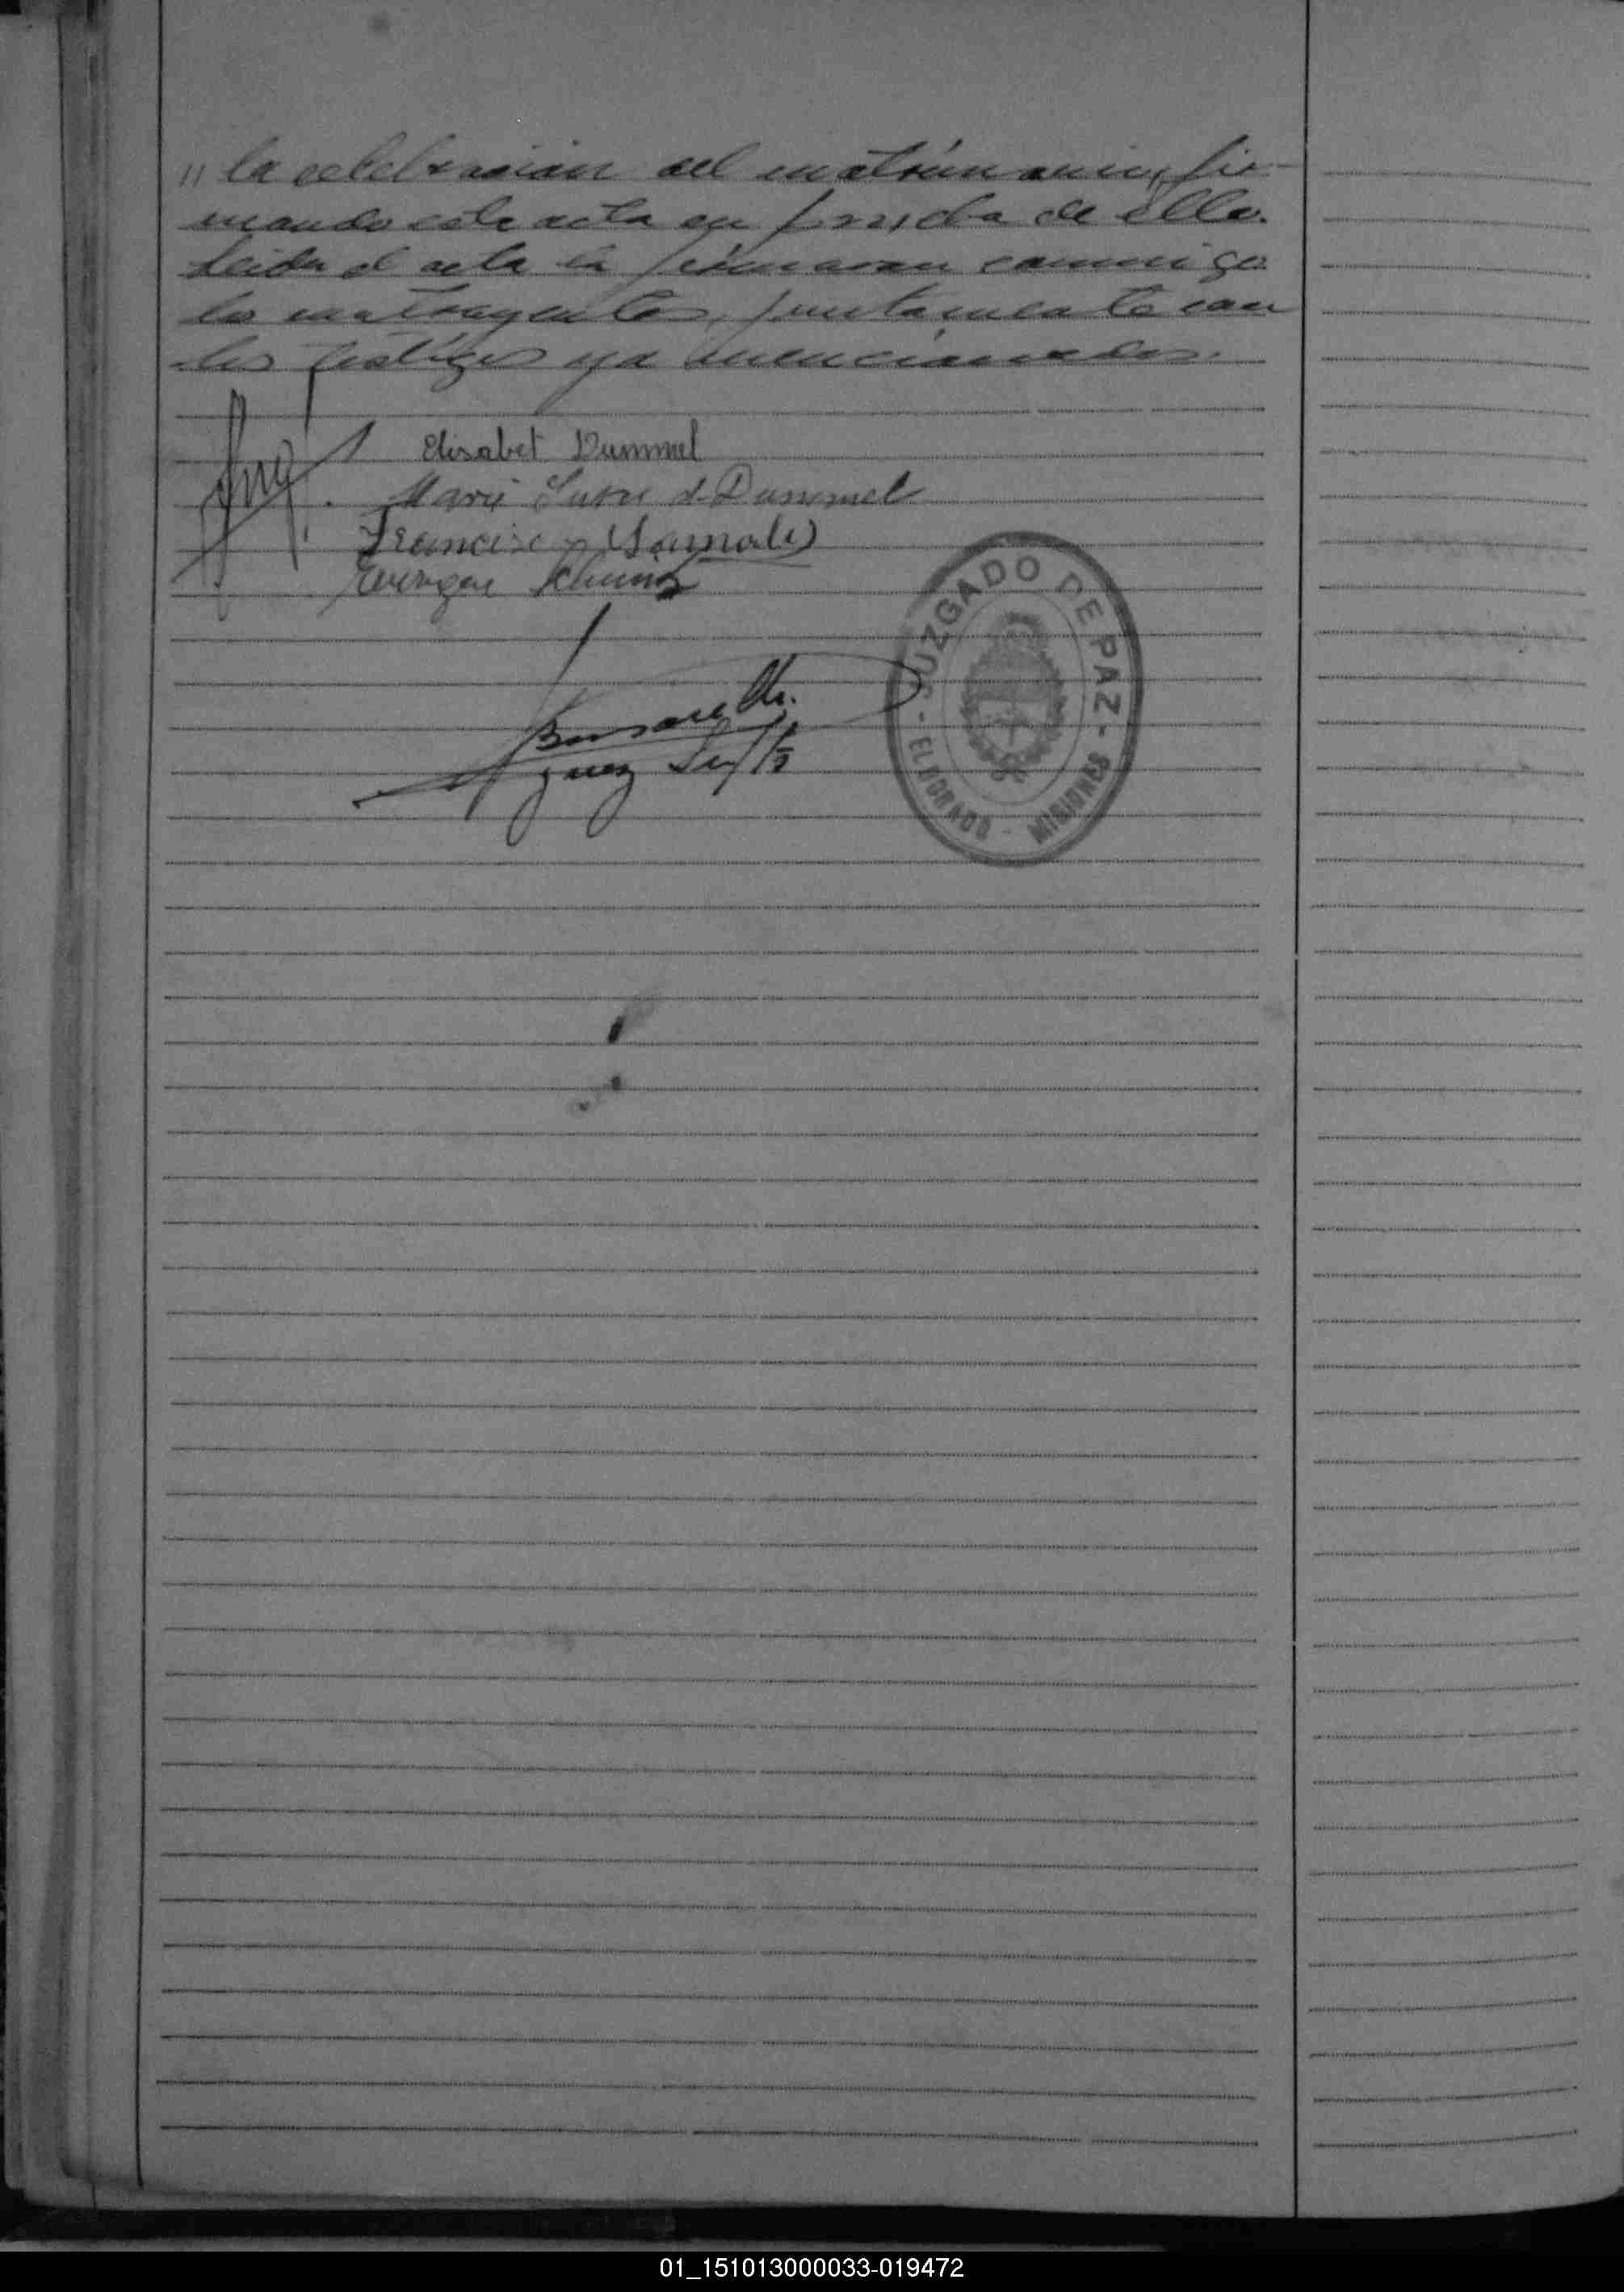 " la celebracion del matrimonio, fir-
mando este acta en prueba de ello.
Leida el acta la firmaron conmigo
los contrayentes, juntamente con
los testigos ya mencionados.
Elisabet Dummel
Maria d. Dummel
Francisco
Enrique
Juez Sup/te
JUZGADO DE PAZ -
- ELDORADO - MISIONES
01_151013000033-019472